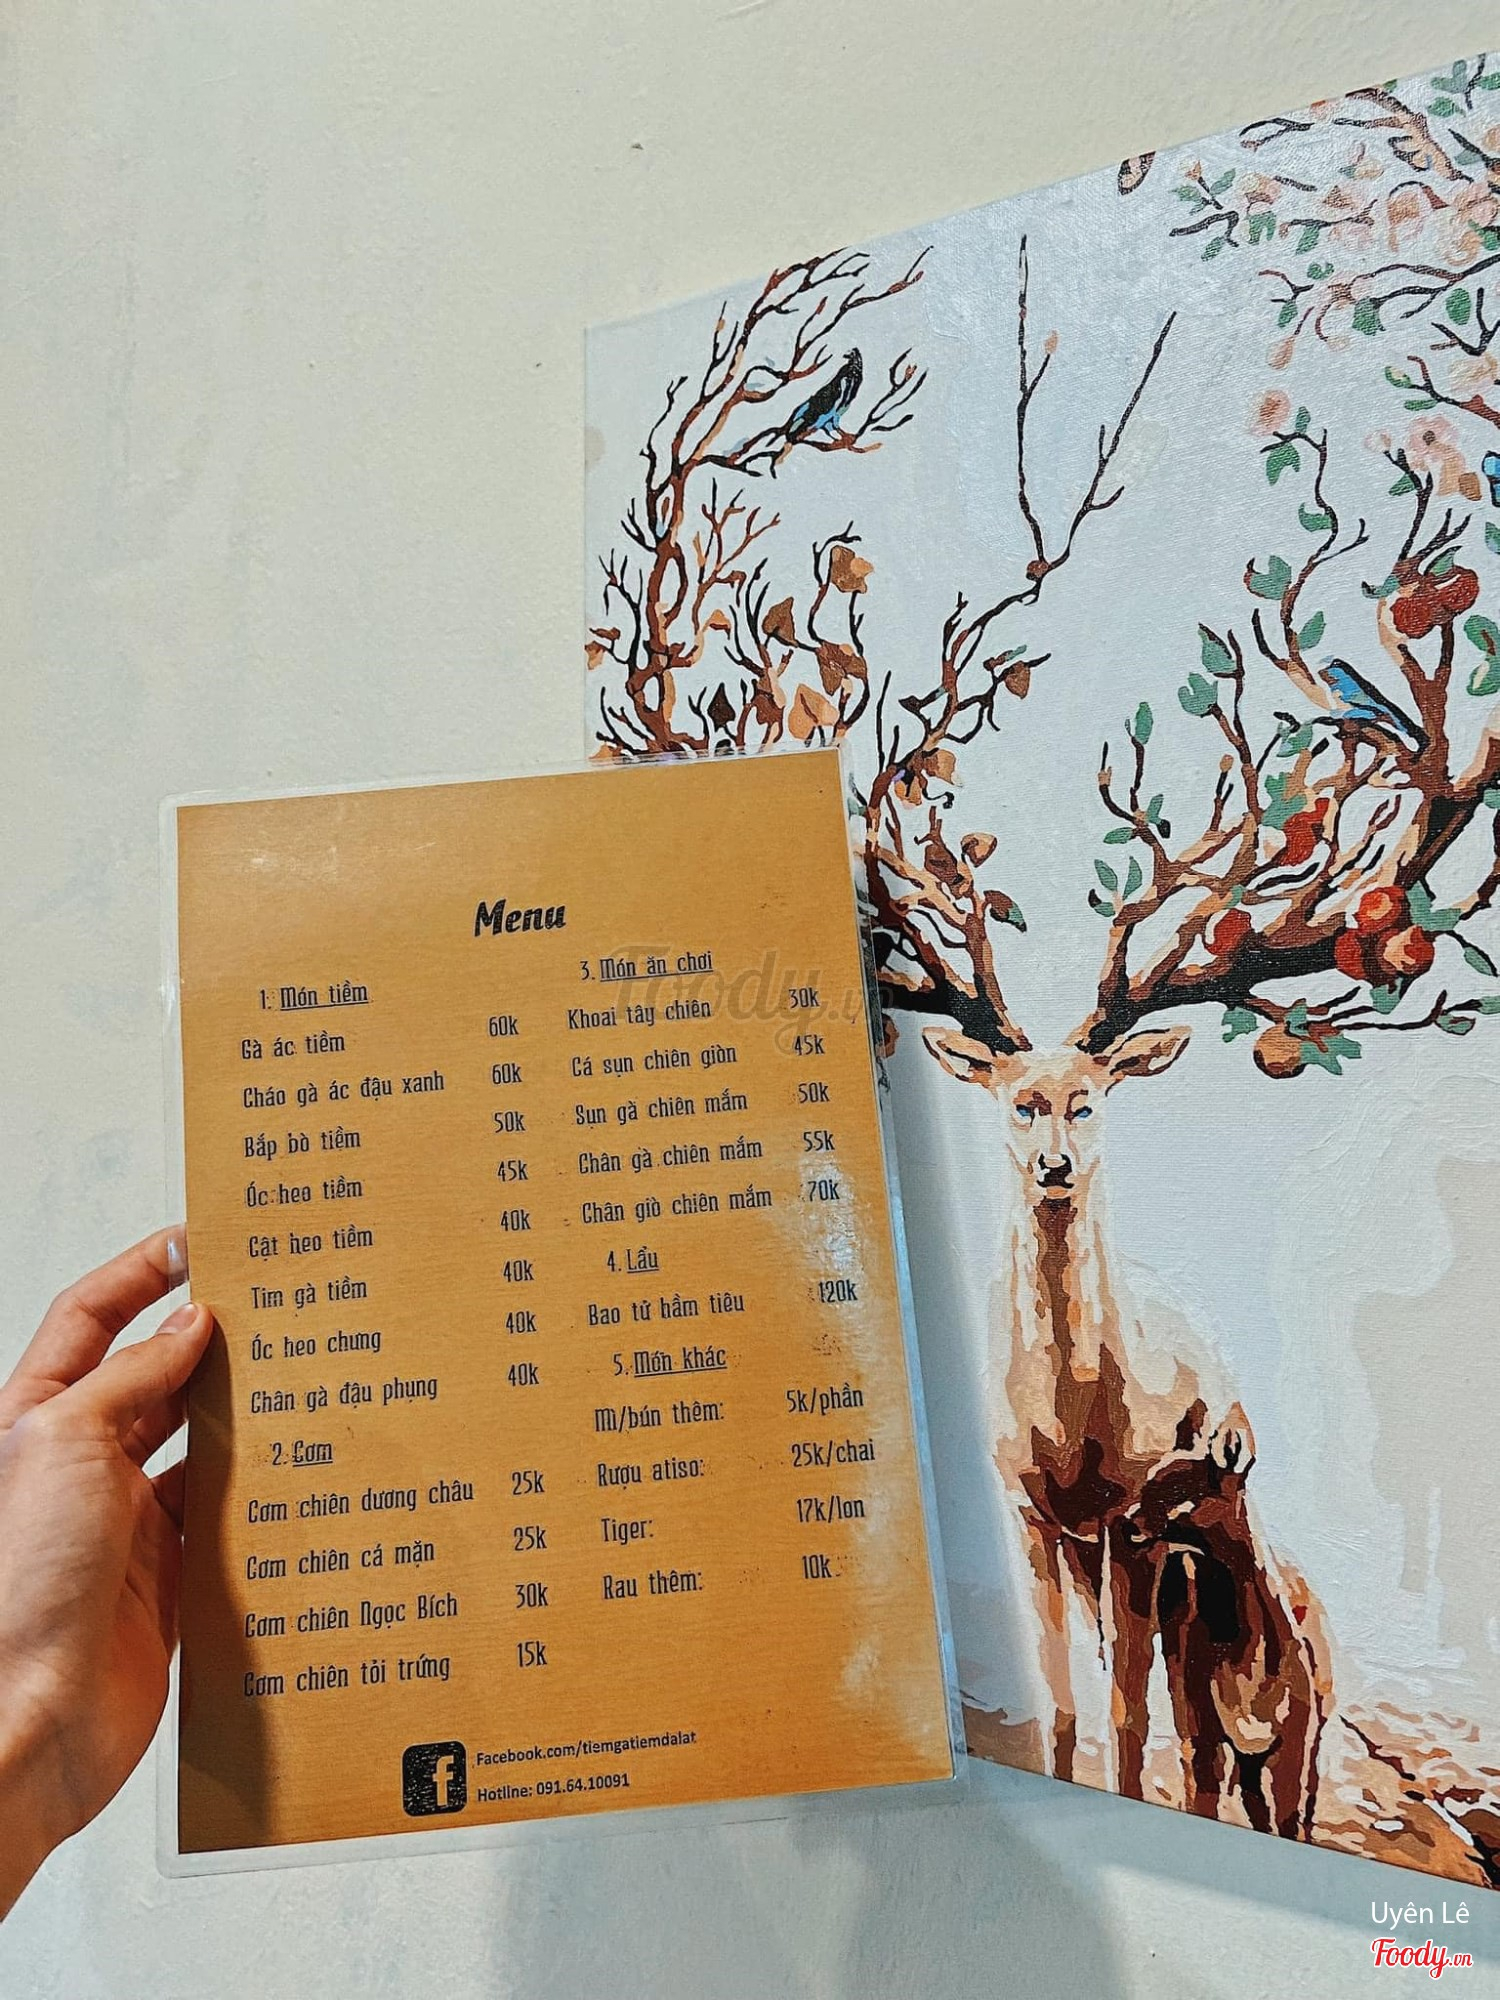 Menu
1. Món tiềm
Gà ác tiềm 60k
Cháo gà ác đậu xanh 60k
Bắp bò tiềm 50k
Óc heo tiềm 45k
Cật heo tiềm 40k
Tim gà tiềm 40k
Óc heo chưng 40k
Chân gà đậu phụng 40k
2. Cơm
Cơm chiên dương châu 25k
Cơm chiên cá mặn 25k
Cơm chiên Ngọc Bích 30k
Cơm chiên tỏi trứng 15k
3. Món ăn chơi
Khoai tây chiên 30k
Cá sụn chiên giòn 45k
Sụn gà chiên mắm 50k
Chân gà chiên mắm 55k
Chân giò chiên mắm 70k
4. Lẩu
Bao tử hầm tiêu 120k
5. Món khác
Mì/bún thêm: 5k/phần
Rượu atiso: 25k/chai
Tiger: 17k/lon
Rau thêm: 10k
Facebook.com/tiemgatiemdalat
Hotline: 091.64.10091
Foody.vn
Uyên Lê
Foody.vn